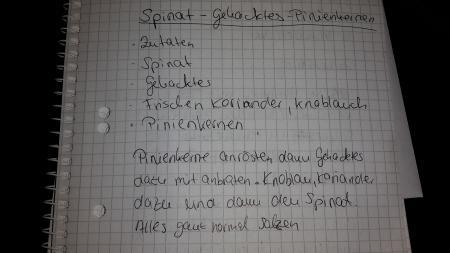 Spinat - Gehacktes - Pinienkernen
· Zutaten
· Spinat
· Gehacktes
· Frischen Koriander, Knoblauch
· Pinienkernen
Pinienkerne anrösten dann Gehacktes
dazu mit anbraten. Knoblau, Koriander
dazu und dann den Spinat.
Alles ganz normal salzen